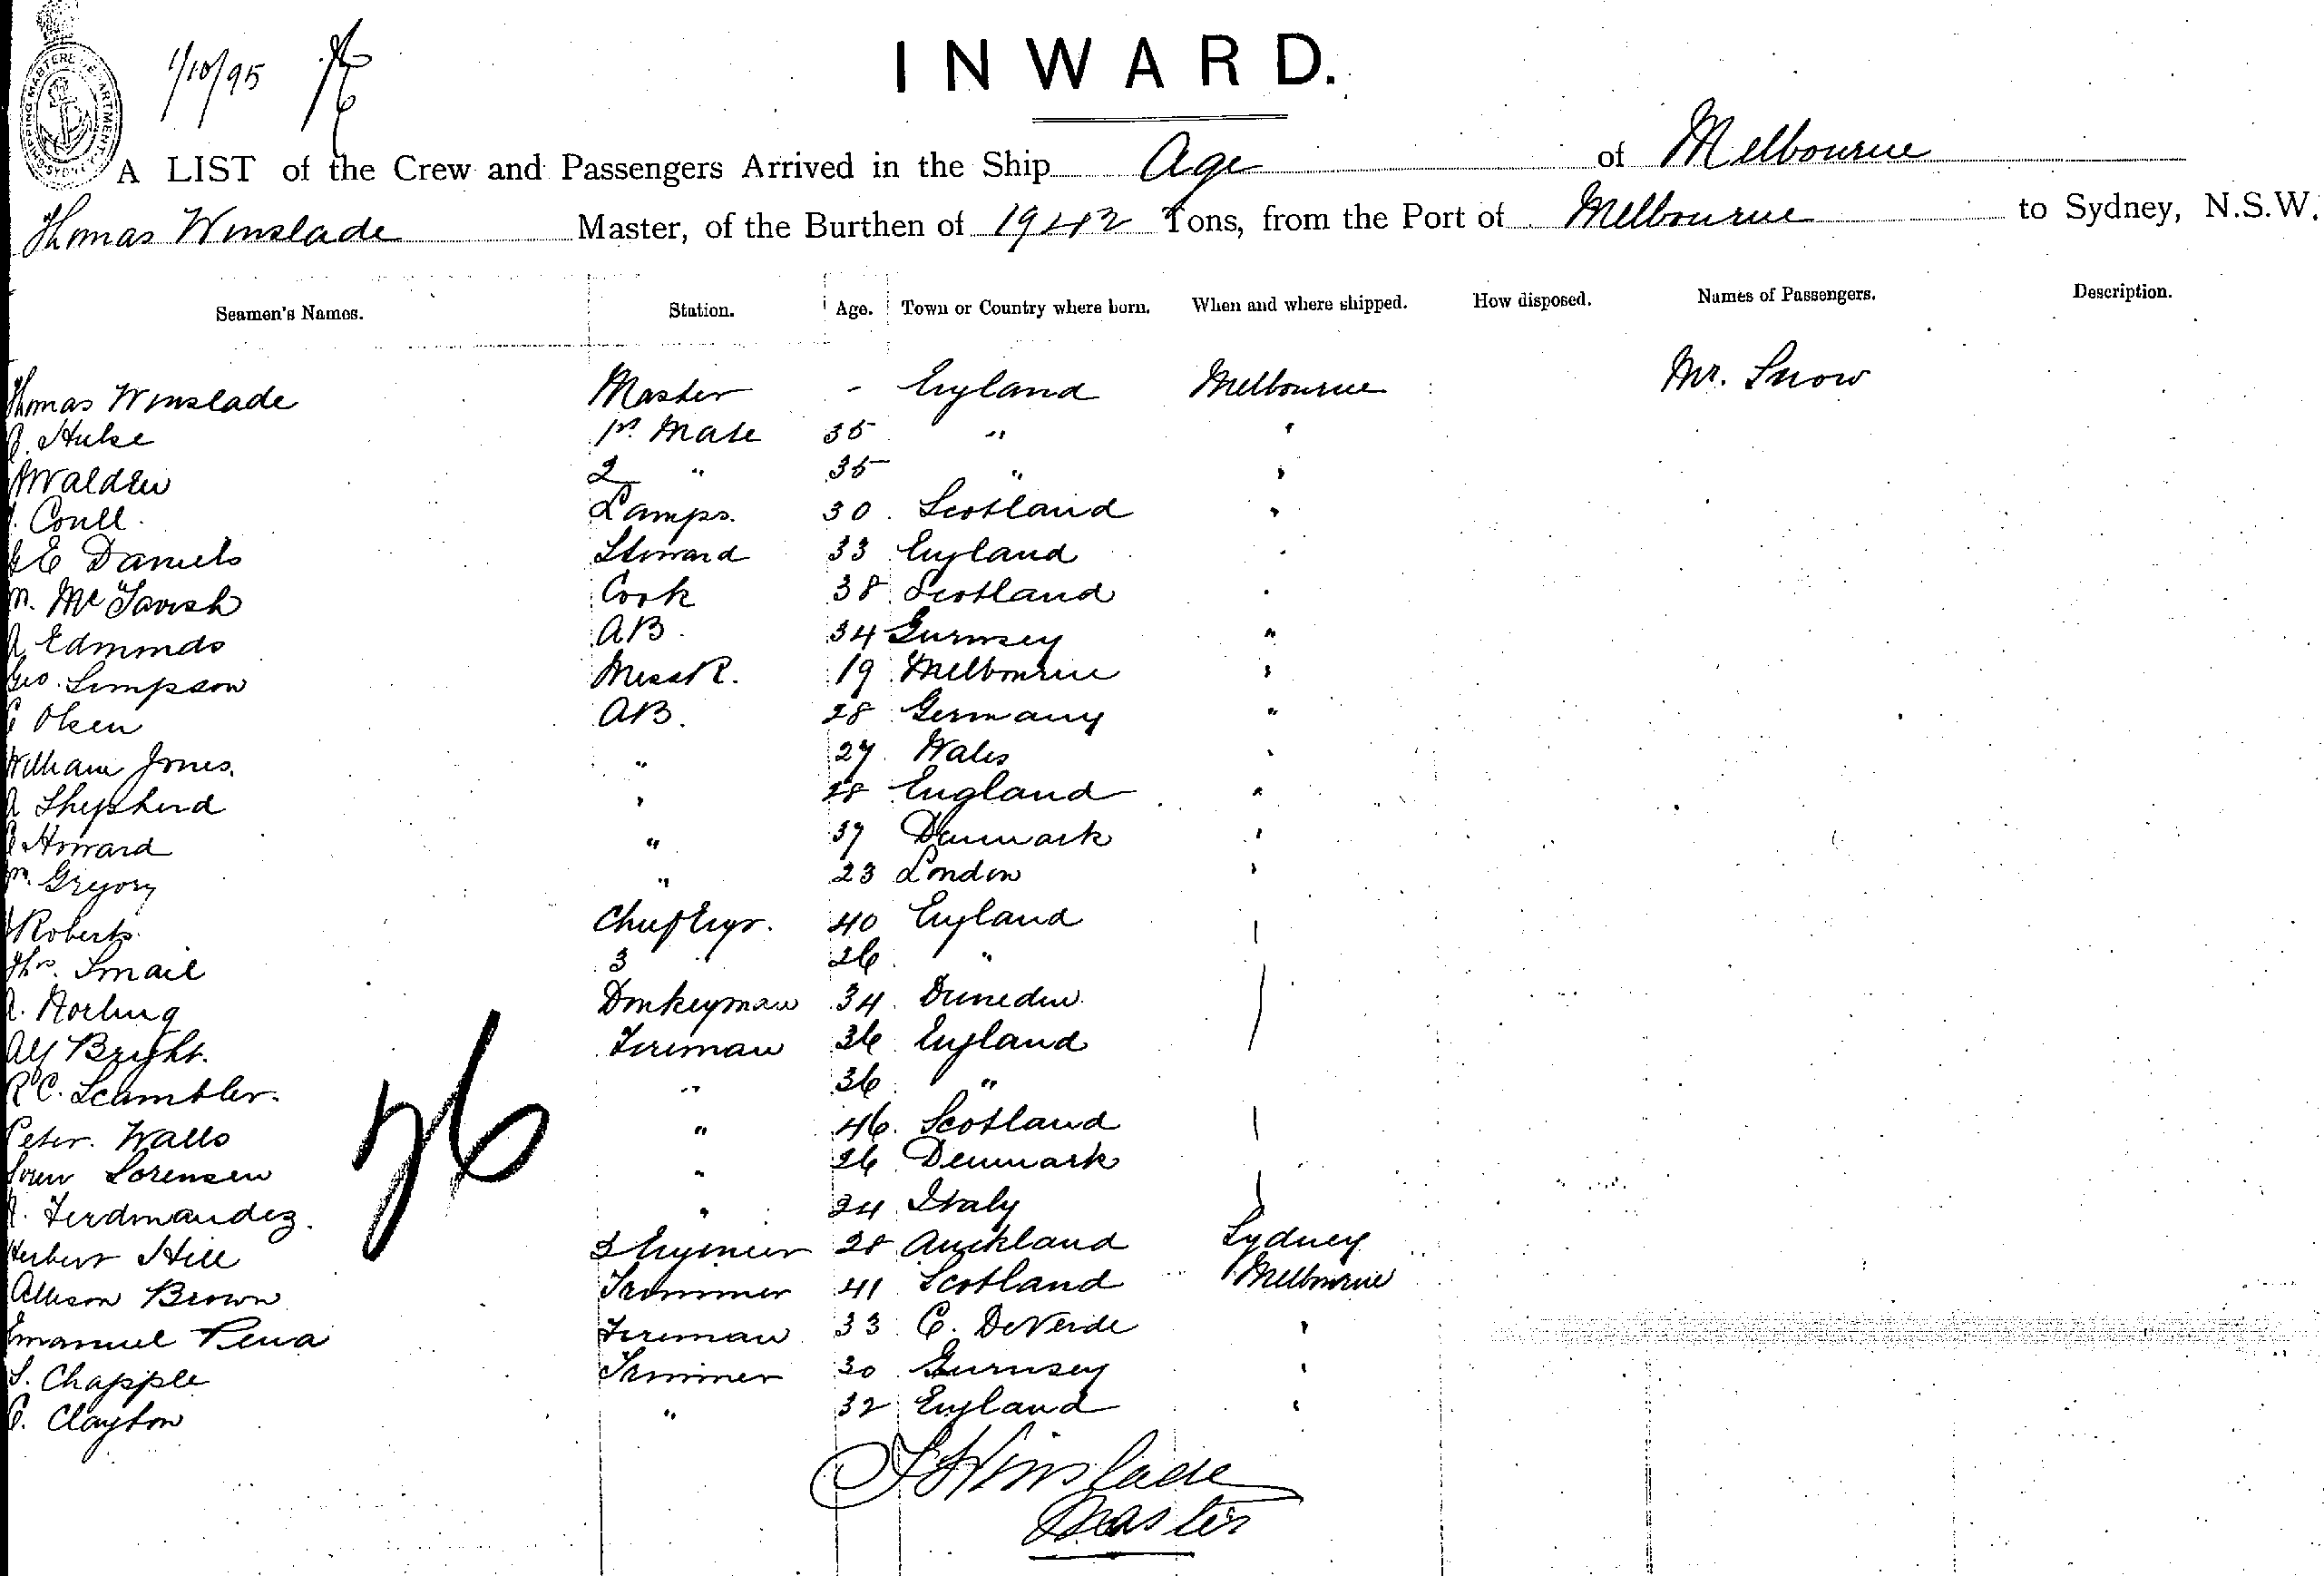 1/10/95
INWARD.
A LIST of the Crew and Passengers Arrived in the Ship Age of Melbourne
Thomas Winslade Master, of the Burthen of 1942 Tons, from the Port of Melbourne to Sydney, N.S.W.
Seamen's Names. Station. Age. Town or Country where born. When and where shipped. How disposed. Names of Passengers. Description.
Thomas Winslade Master - England Melbourne Mr. Snow
Huke 1st Mate 35 " "
Walden 2 " 35 " "
Coull. Lamps. 30 Scotland "
E Daniels Steward 33 England "
McTavish Cook 38 Scotland "
A Edmonds AB. 34 Gurnsey "
Geo. Simpson MessR. 19 Melbourne "
Olsen AB. 28 Germany "
William Jones. " 27 Wales "
A Shepherd " 28 England "
Howard " 37 Denmark "
Wm. Gregory " 23 London "
Roberts. Chief Engr. 40 England
Thos. Smail 3 " 26 "
Norling Donkeyman 34 Dunedin
Alf Bright. Fireman 36 England
R C. Scambler. " 36 "
Peter. Walls " 46 Scotland
Soren Sorensen " 26 Denmark
Ferdinandez. " 24 Italy
Herbert Hill 2 Engineer 28 Auckland Sydney
Allison Brown Trimmer 41 Scotland Melbourne
Emanuel Pena Fireman 33 C. DeVerde "
S. Chapple Trimmer 30 Gurnsey "
C. Clayton " 32 England "
26
T Winslade
Master